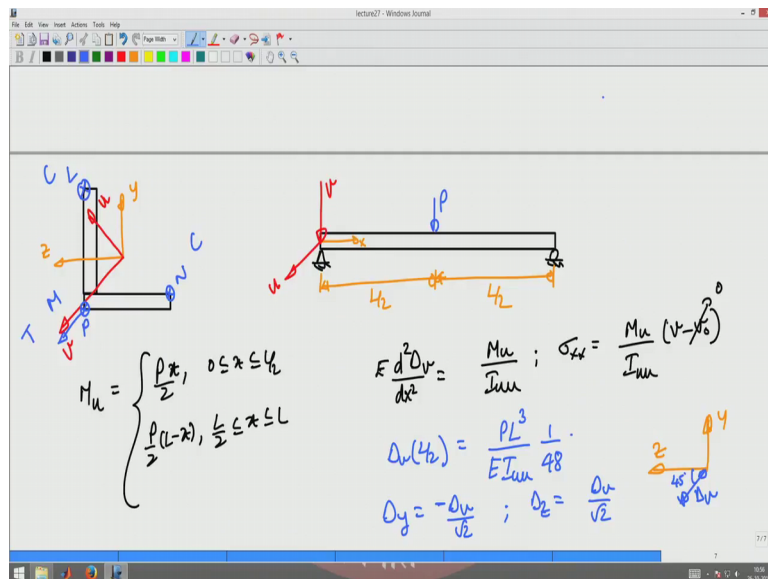 lecture27 - Windows Journal
File Edit View Insert Actions Tools Help
Page Width
B I
C L
u
y
z
C
N
M
P
T
v
v
P
x
u
L/2
L/2
0
M_u = { Px/2, 0 ≤ x ≤ L/2
P/2 (L-x), L/2 ≤ x ≤ L
E d²Δ_v/dx² = M_u/I_uu ; σ_xx = M_u/I_uu (v - v_0)
Δ_v(L/2) = PL³/EI_uu 1/48 .
Δ_y = -Δ_v/√2 ; Δ_z = Δ_v/√2
y
z
45
Δ_v
7/7
7
10:56